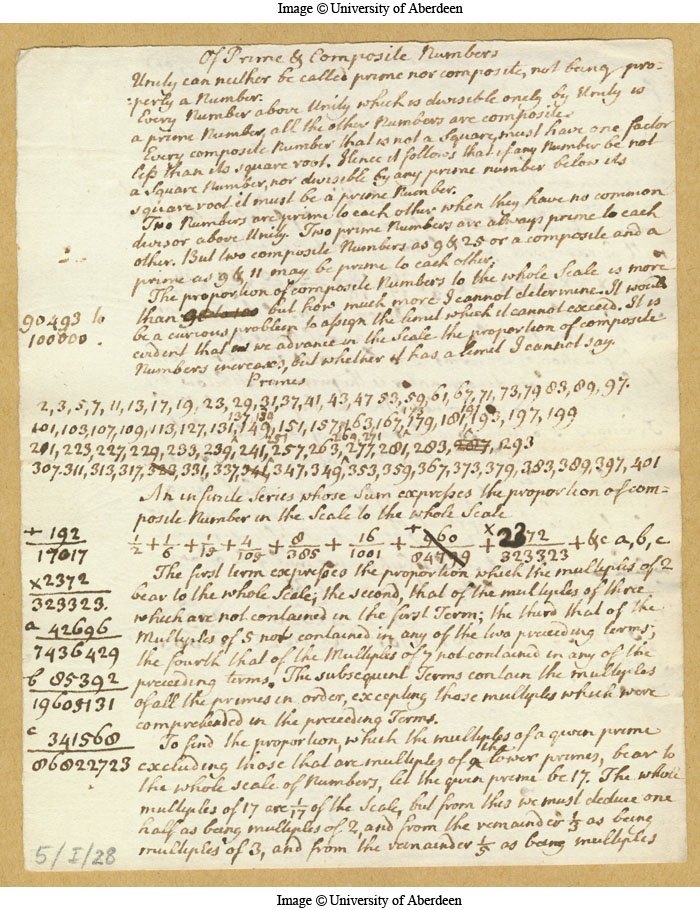 Image © University of Aberdeen
Of Prime & Composite Numbers
Unity can neither be called prime nor composite, not being pro-
-perly a Number.
Every Number above Unity which is divisible onely by Unity is
a prime Number, all the other Numbers are composite.
Every composite Number that is not a Square, must have one factor
less than its square root. Hence it follows that if any Number be not
a Square Number, nor divisible by any prime number below its
square root it must be a prime Number.
Two Numbers are prime to each other when they have no common
divisor above Unity. Two prime Numbers are always prime to each
other. But two composite Numbers as 9 & 25 or a composite and a
prime as 9 & 11 may be prime to each other.
The proportion of composite Numbers to the whole Scale is more
90493 to
100000.
than but how much more I cannot determine. It would
be a curious problem to assign the limit which it cannot exceed. It is
evident that as we advance in the Scale the proportion of composite
Numbers increases, but whether it has a limit I cannot say.
Primes
2, 3, 5, 7, 11, 13, 17, 19, 23, 29, 31, 37, 41, 43, 47 53, 59, 61, 67, 71, 73, 79 83, 89, 97.
137, 139 173 191
101, 103, 107, 109, 113, 127, 131, 149, 151, 157, 163, 167, 179, 181, 193, 197, 199
251 269, 271
201, 223, 227, 229, 233, 239, 241, 257, 263, 277, 281, 283, 293
307. 311, 313, 317, 331, 337, 347, 349, 353, 359, 367, 373, 379, 383, 389, 397, 401
An infinite Series whose Sum expresses the proportion of com-
posite Number in the Scale to the whole Scale
1/2 + 1/6 + 1/15 + 4/105 + 8/385 + 16/1001 + + 960/84799 + x 2372/323323 + &c a, b, c
+ 192
17017
x 2372
323323.
a 42696
7436429
b 85392
19603131
c 341568
86822723
The first term expresses the proportion which the multiples of 2
bear to the whole Scale; the second, that of the multiples of three
which are not contained in the first Term; the third that of the
Multiples of 5 not contained in any of the two preceding terms;
the fourth that of the Multiples of 7 not contained in any of the
preceding terms. The subsequent Terms contain the multiples
of all the primes in order, excepting those multiples which were
comprehended in the preceding Terms.
To find the proportion, which the multiples of a given prime
excluding those that are multiples of the lower primes, bear to
the whole scale of Numbers, let the given prime be 17. The whole
multiples of 17 are 1/17 of the Scale, but from this we must deduce one
half as being multiples of 2, and from the remainder 1/3 as being
multiples of 3, and from the remainder 1/5 as being multiples
5/I/28
Image © University of Aberdeen